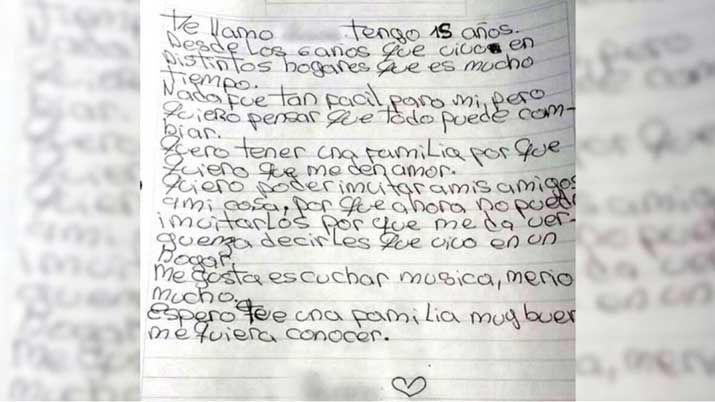 Te llamo tengo 15 años.
Desde los 6 años que vivo en
Distintos hogares que es mucho
tiempo.
Nada fue tan facil para mi, pero
quiero pensar que todo puede cam-
biar.
quero tener una familia por que
quiero que me den amor.
quiero poder invitar a mis amigos
a mi casa, por que ahora no puedo
invitarlos por que me da ver-
guenza decirles que vivo en un
hogar.
me gusta escuchar musica, me rio
mucho.
espero que una familia muy buen
me quiera conocer.